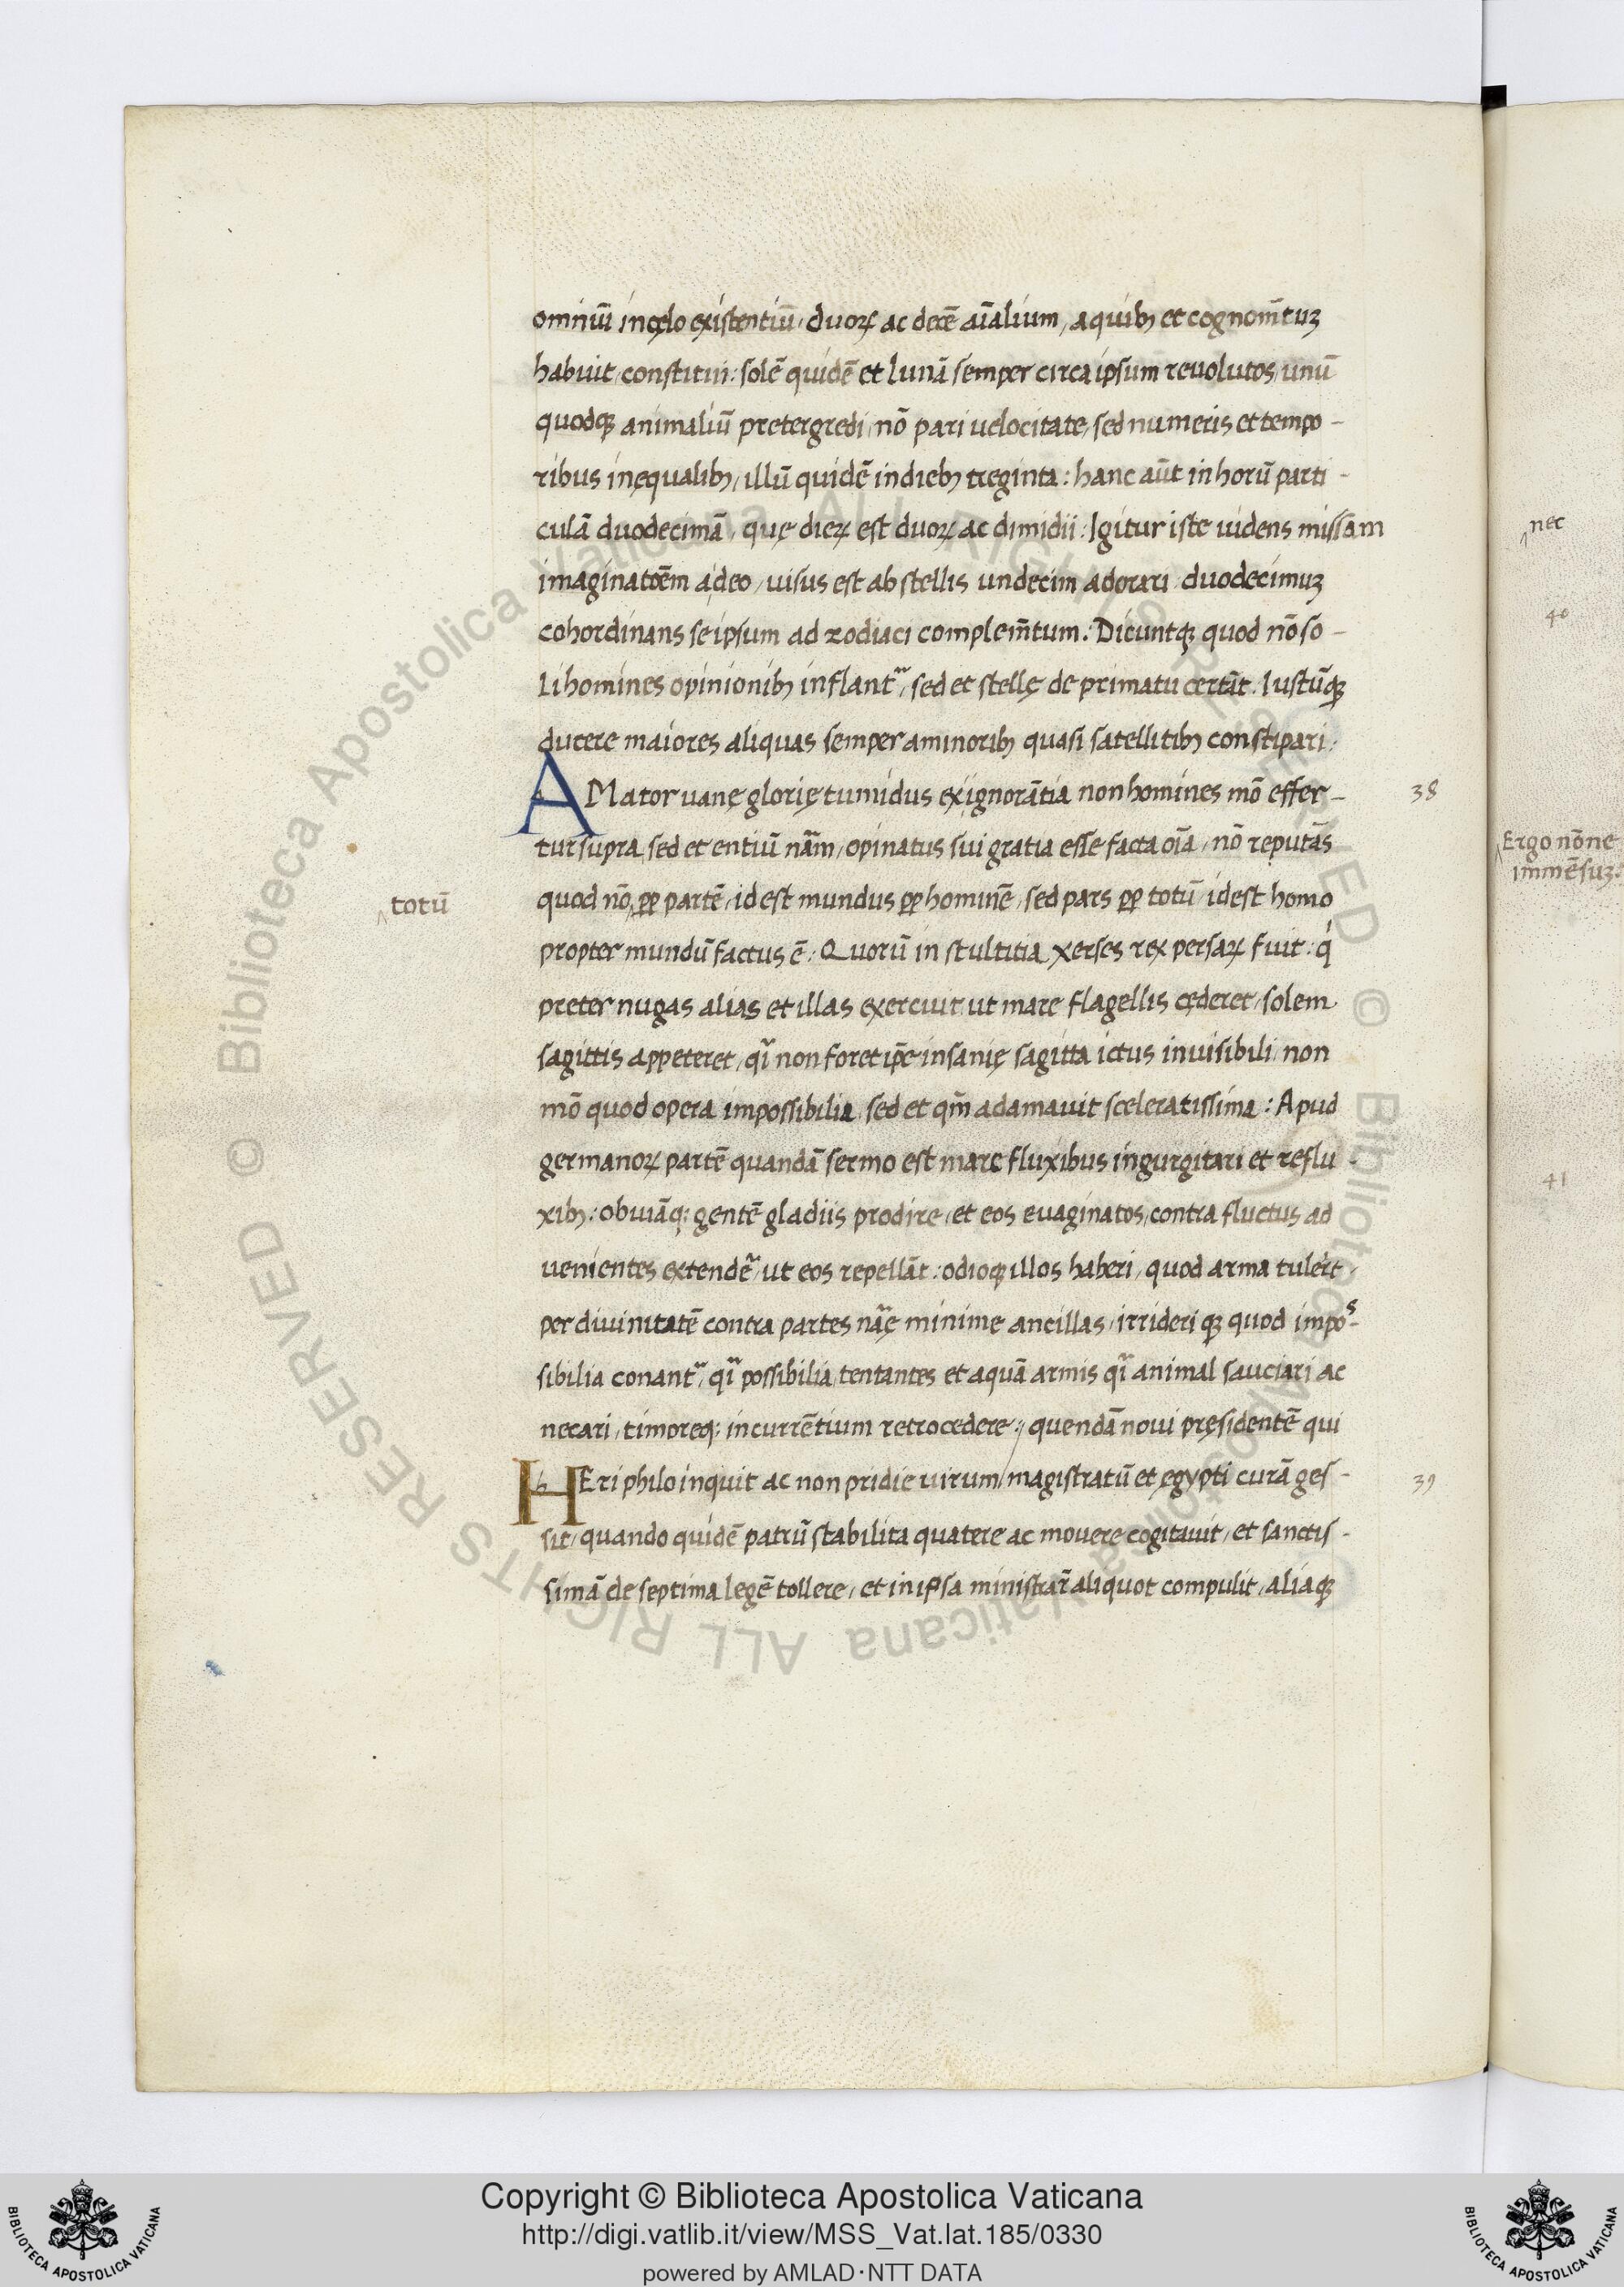 omniū in cęlo existentiū, duoꝝ ac decē aīalium, a quibꝫ et cognom̄tuꝫ
habuit, constitui: solē quidē et lunā semper circa ipsum revolutos, unū
quodqꝫ animaliū pretergredi, nō pari uelocitate, sed numeris et tempo-
ribus inęqualibꝫ, illū quidē in diebꝫ treginta: hanc aūt in horū parti-
culā duodecimā, quę dieꝝ est duoꝝ ac dimidii. Igitur iste uidens missam
imaginatōem a deo, uisus est ab stellis undecim adorari duodecimuꝫ
cohordinans se ipsum ad zodiaci complem̄tum. Dicuntqꝫ quod nō so-
li homines opinionibꝫ inflantᷣ, sed et stellę de primatu certāt. Iustūqꝫ
ducere maiores aliquas semper a minoribꝫ quasi satellitibꝫ constipari:
AMator uanę glorię tumidus exignorātia non homines mō effer-
tur supra, sed et entiū nām, opinatus sui gratia esse facta oīa, nō reputās
totū
quod nō ꝑꝑ partē, id est mundus ꝑꝑ hominē, sed pars ꝑꝑ totū idest homo
propter mundū factus ē: Quorū in stultitia xerses rex persaꝝ fuit: q́
preter nugas alias et illas exercuit ut mare flagellis cęderet, solem
sagittis appeteret, qi᷈ non foret ip̄e insanię sagitta ictus inuisibili non
mō quod opera impossibilia, sed et qm̄ adamauit sceleratissima: Apud
germanoꝝ partē quandā sermo est mare fluxibus ingurgitari et reflu
xibꝫ: obuiāq; gentē gladiis prodire, et eos evaginatos, contra fluctus ad
uenientes extendeᷣ, ut eos repellāt: odioqꝫ illos haberi, quod arma tulēt,
per diuinitatē contra partes nāę minime ancillas, irrideriqꝫ quod impos-
sibilia conantᷣ, qi᷈ possibilia, tentantes et aquā armis qi᷈ animal sauciari ac
necari, timoreq; incurrētium retrocedere: quendā noui pręsidentē qui
HEri philo inquit ac non pridie uirum magistratū et ęgypti curā ges-
sit, quando quidē patrū stabilita quatere ac mouere cogitauit, et sanctis-
simā de septima legē tollere, et in ipsa ministrar̄ aliquot compulit, aliaqꝫ
38
39
nec
40
Ergo nōne
immēsuꝫ.
41
© Biblioteca Apostolica Vaticana ALL RIGHTS RESERVED
© Biblioteca Apostolica Vaticana ALL RIGHTS RESERVED
Copyright © Biblioteca Apostolica Vaticana
http://digi.vatlib.it/view/MSS_Vat.lat.185/0330
powered by AMLAD·NTT DATA
BIBLIOTECA APOSTOLICA VATICANA
BIBLIOTECA APOSTOLICA VATICANA